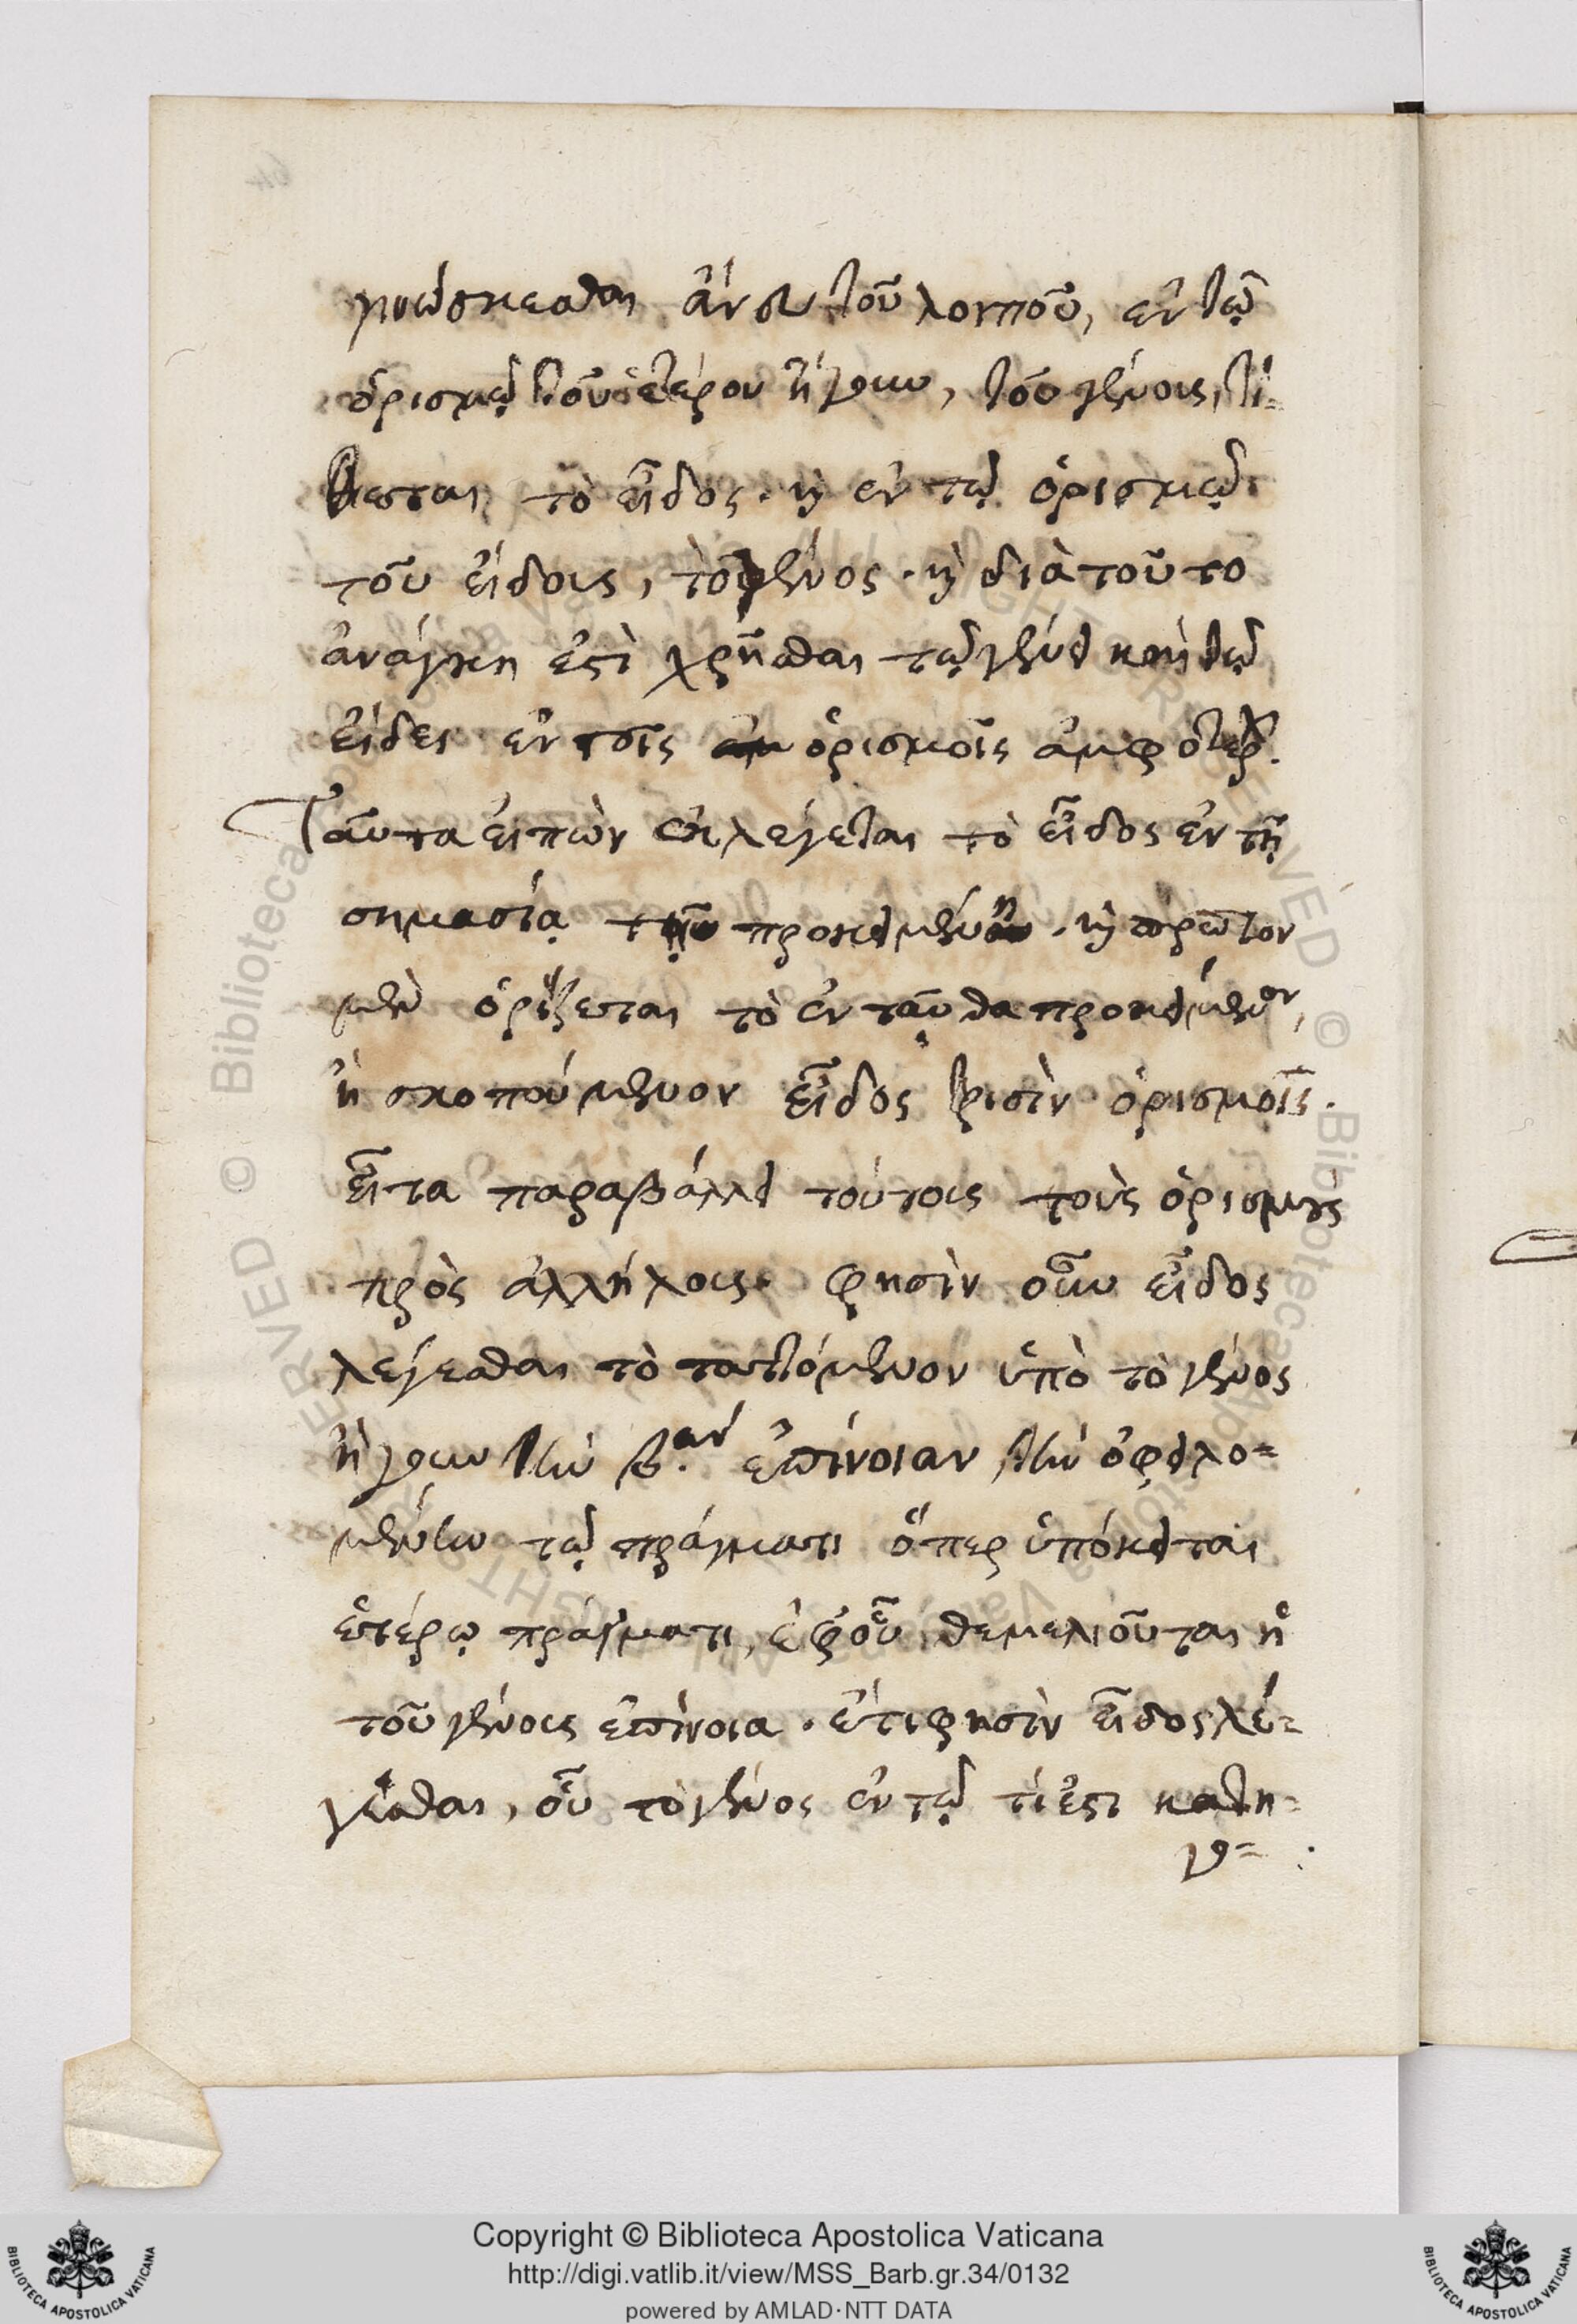 γινώσκεσθαι ἄνευ τοῦ λοιποῦ, ἐν τῷ
ὁρισμῷ τοῦ ἑτέρου ἤγουν, τοῦ γένους, τί=
θεται τὸ εἶδος. καὶ ἐν τῷ ὁρισμῷ
τοῦ εἴδους, τὸ γένος. καὶ διὰ τοῦτο
ἀνάγκη ἐστὶ χρῆσθαι τῷ γένει καὶ τῷ
εἴδει ἐν τοῖς ὁρισμοῖς ἀμφοτέρων.
Ταῦτα εἰπὼν λέγεται τὸ εἶδος ἐν τῇ
σημασίᾳ τῇ προκειμένῃ. καὶ πρῶτον
μὲν ὁρίζεται τὸ ἐνταῦθα προκείμενον,
ἢ σκοπούμενον εἶδος τρισὶν ὁρισμοῖς.
εἶτα παραβάλλει τούτους τοὺς ὁρισμοὺς
πρὸς ἀλλήλους. φησὶν οὖν εἶδος
λέγεσθαι τὸ ταττόμενον ὑπὸ τὸ γένος
ἤγουν τὴν β.αν ἐπίνοιαν τὴν ὀφειλο=
μένην τῷ πράγματι ὅπερ ὑπόκειται
ἑτέρῳ πράγματι, ἐφ' οὗ θεμελιοῦται ἡ
τοῦ γένους ἐπίνοια. ἔτι φησὶν εἶδος λέ=
γεσθαι, οὗ τὸ γένος ἐν τῷ τί ἐστι κατη=
γο=
Copyright © Biblioteca Apostolica Vaticana
http://digi.vatlib.it/view/MSS_Barb.gr.34/0132
powered by AMLAD·NTT DATA